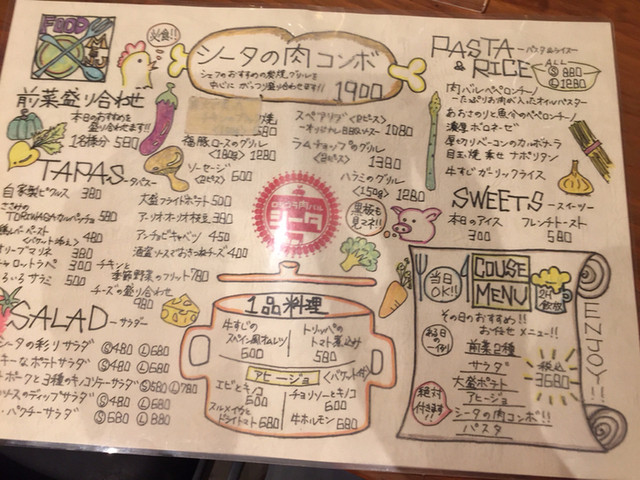 FOOD
MENU
必食!!
シータの肉コンボ
シェフのおすすめの炭焼グリルを
中心に がっつり盛り合わせます!!
1900
前菜盛り合わせ
本日のおすすめを
盛り合わせます!!
1名様分 580
焼
福豚ロースのグリル
<180g> 1280
ソーセージ
<2ピース> 600
スペアリブ<2ピース>
-オリジナルBBQソース 1080
ラムチョップのグリル
<2ピース> 1380
ハラミのグリル
<150g> 1280
黒板も
見てネ!!
TAPAS -タパス-
自家製ピクルス 380
ささみの
TORIWASAカルパッチョ 580
レバーペースト
<バケット添え> 480
オリーブマリネ 450
キャロットラペ 300
いろいろサラミ 500
大盛フライドポテト 500
アーリオオーリオ枝豆 380
アンチョビキャベツ 450
酒盗ソースでおきつねチーズ 400
チキンと
季節野菜のフリット 780
チーズの盛り合わせ
980
ロックフク肉バル
シータ
SALAD -サラダ-
シータの彩りサラダ Ⓢ480 Ⓛ680
キーなポテトサラダ Ⓢ480 Ⓛ680
ポークと3種のキノコソテーサラダ Ⓢ580 Ⓛ780
ソースのディップサラダ Ⓢ480 Ⓛ680
・パクチーサラダ Ⓢ680 Ⓛ880
1品料理
牛すじの
スペイン風オムレツ
500
トリッパの
トマト煮込み
580
アヒージョ
<バケット付>
エビとキノコ
600
チョリソーとキノコ
600
スルメイカと
ドライトマト 680
牛ホルモン
680
PASTA & RICE -パスタ&ライス-
ALL
Ⓢ 880
Ⓛ 1280
肉バルペペロンチーノ
-たっぷりお肉が入ったオイルパスタ-
あさのりと魚介のペペロンチーノ
濃厚ボロネーゼ
厚切りベーコンのカルボナーラ
目玉焼乗せナポリタン
牛すじガーリックライス
SWEETS -スイーツ-
本日のアイス
300
フレンチトースト
580
当日
OK!!
COUSE
MENU
2H飲放
その日のおすすめ!!
お任せメニュー!!
ある日の
例
前菜2種
サラダ
大盛ポテト
アヒージョ
シータの肉コンボ!!
パスタ
税込
3680
絶対
付きます!!
ENJOY!!